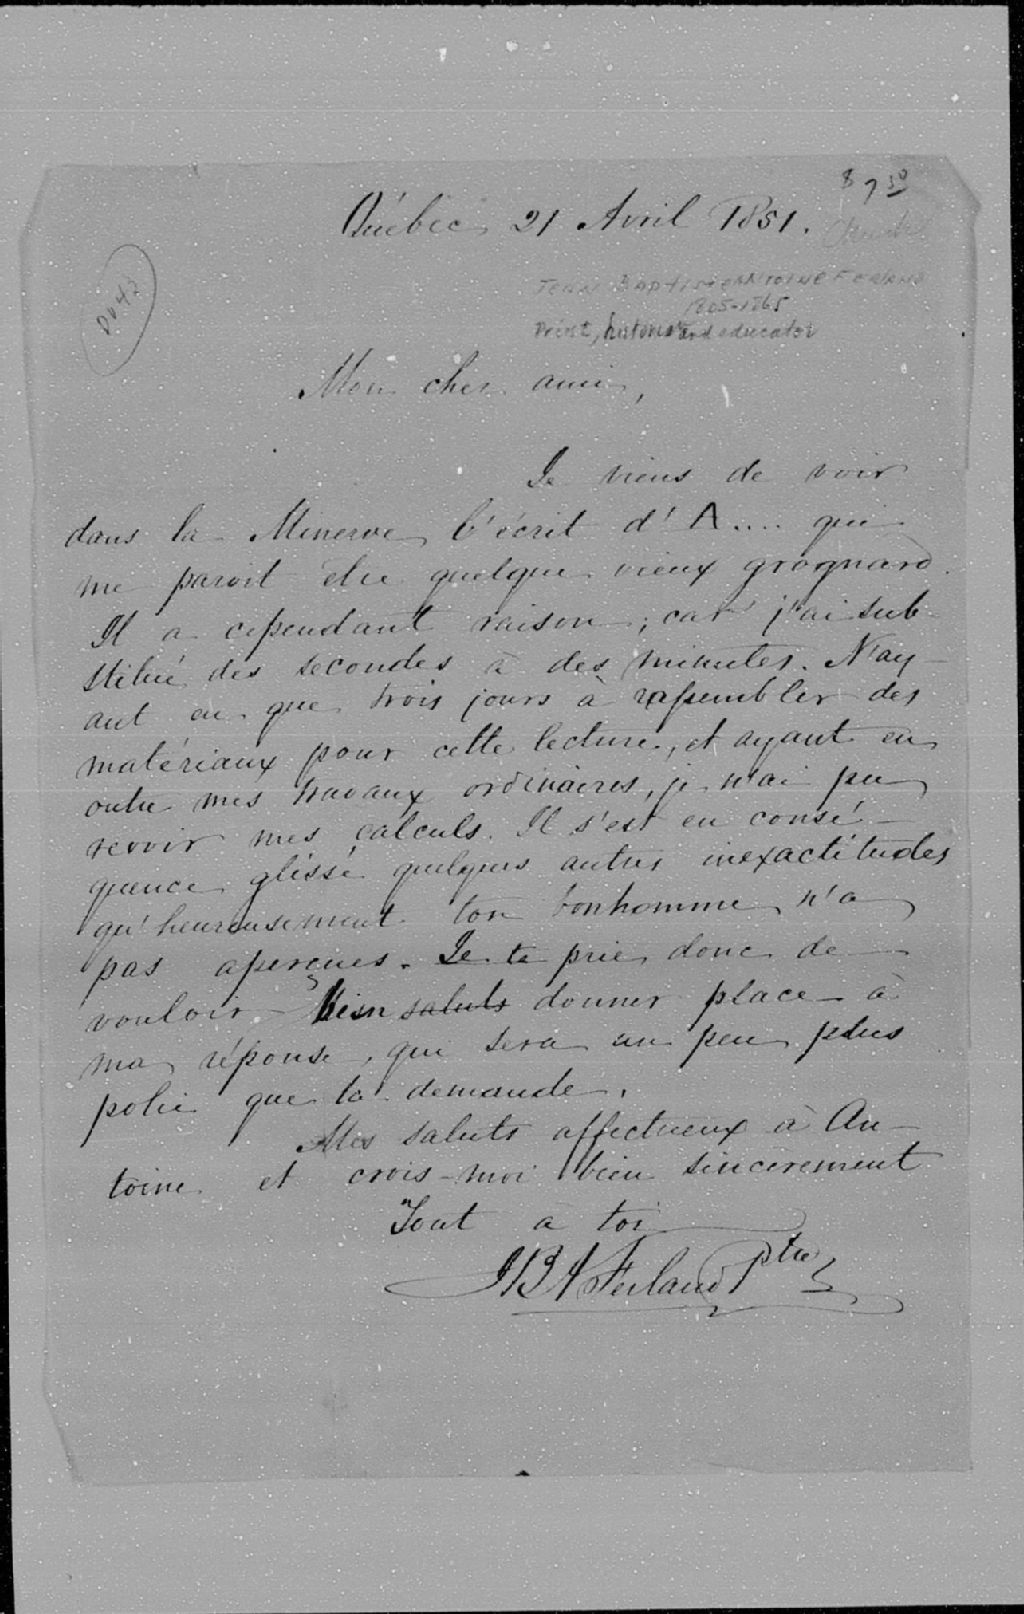 $ 7 50
Québec 21 Avril 1851.
D047
JEAN BAPTISTE ANTOINE FERLAND
1805-1865
Priest, historian and educator
Mon cher ami,
Je viens de voir
dans la Minerve l'écrit d'A.... qui
me paroit être quelque vieux grognard.
Il a cependant raison; car j'ai sub-
stitué des secondes à des minutes. N'ay-
ant eu que trois jours à rassembler des
matériaux pour cette lecture, et ayant eu
outre mes travaux ordinaires, je n'ai pu
revoir mes calculs. Il s'est en consé-
quence glissé quelques autres inexactitudes
qu'heureusement ton bonhomme n'a
pas aperçues. Je te prie donc de
vouloir bien saluts donner place à
ma réponse, qui sera un peu plus
polie que la demande.
Mes saluts affectueux à An-
toine et crois-moi bien sincerement
Tout à toi
JBA Ferland Ptre